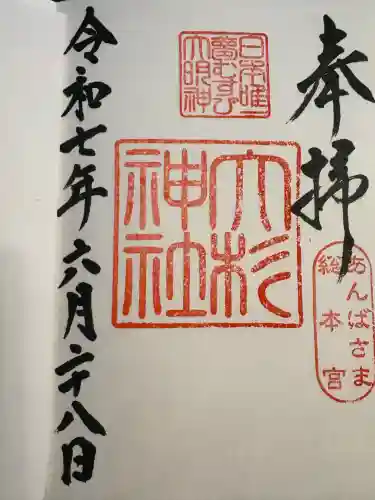 奉拝
日本唯一
夢むすび
大明神
大杉
神社
あんばさま
総本宮
令和七年六月二十八日